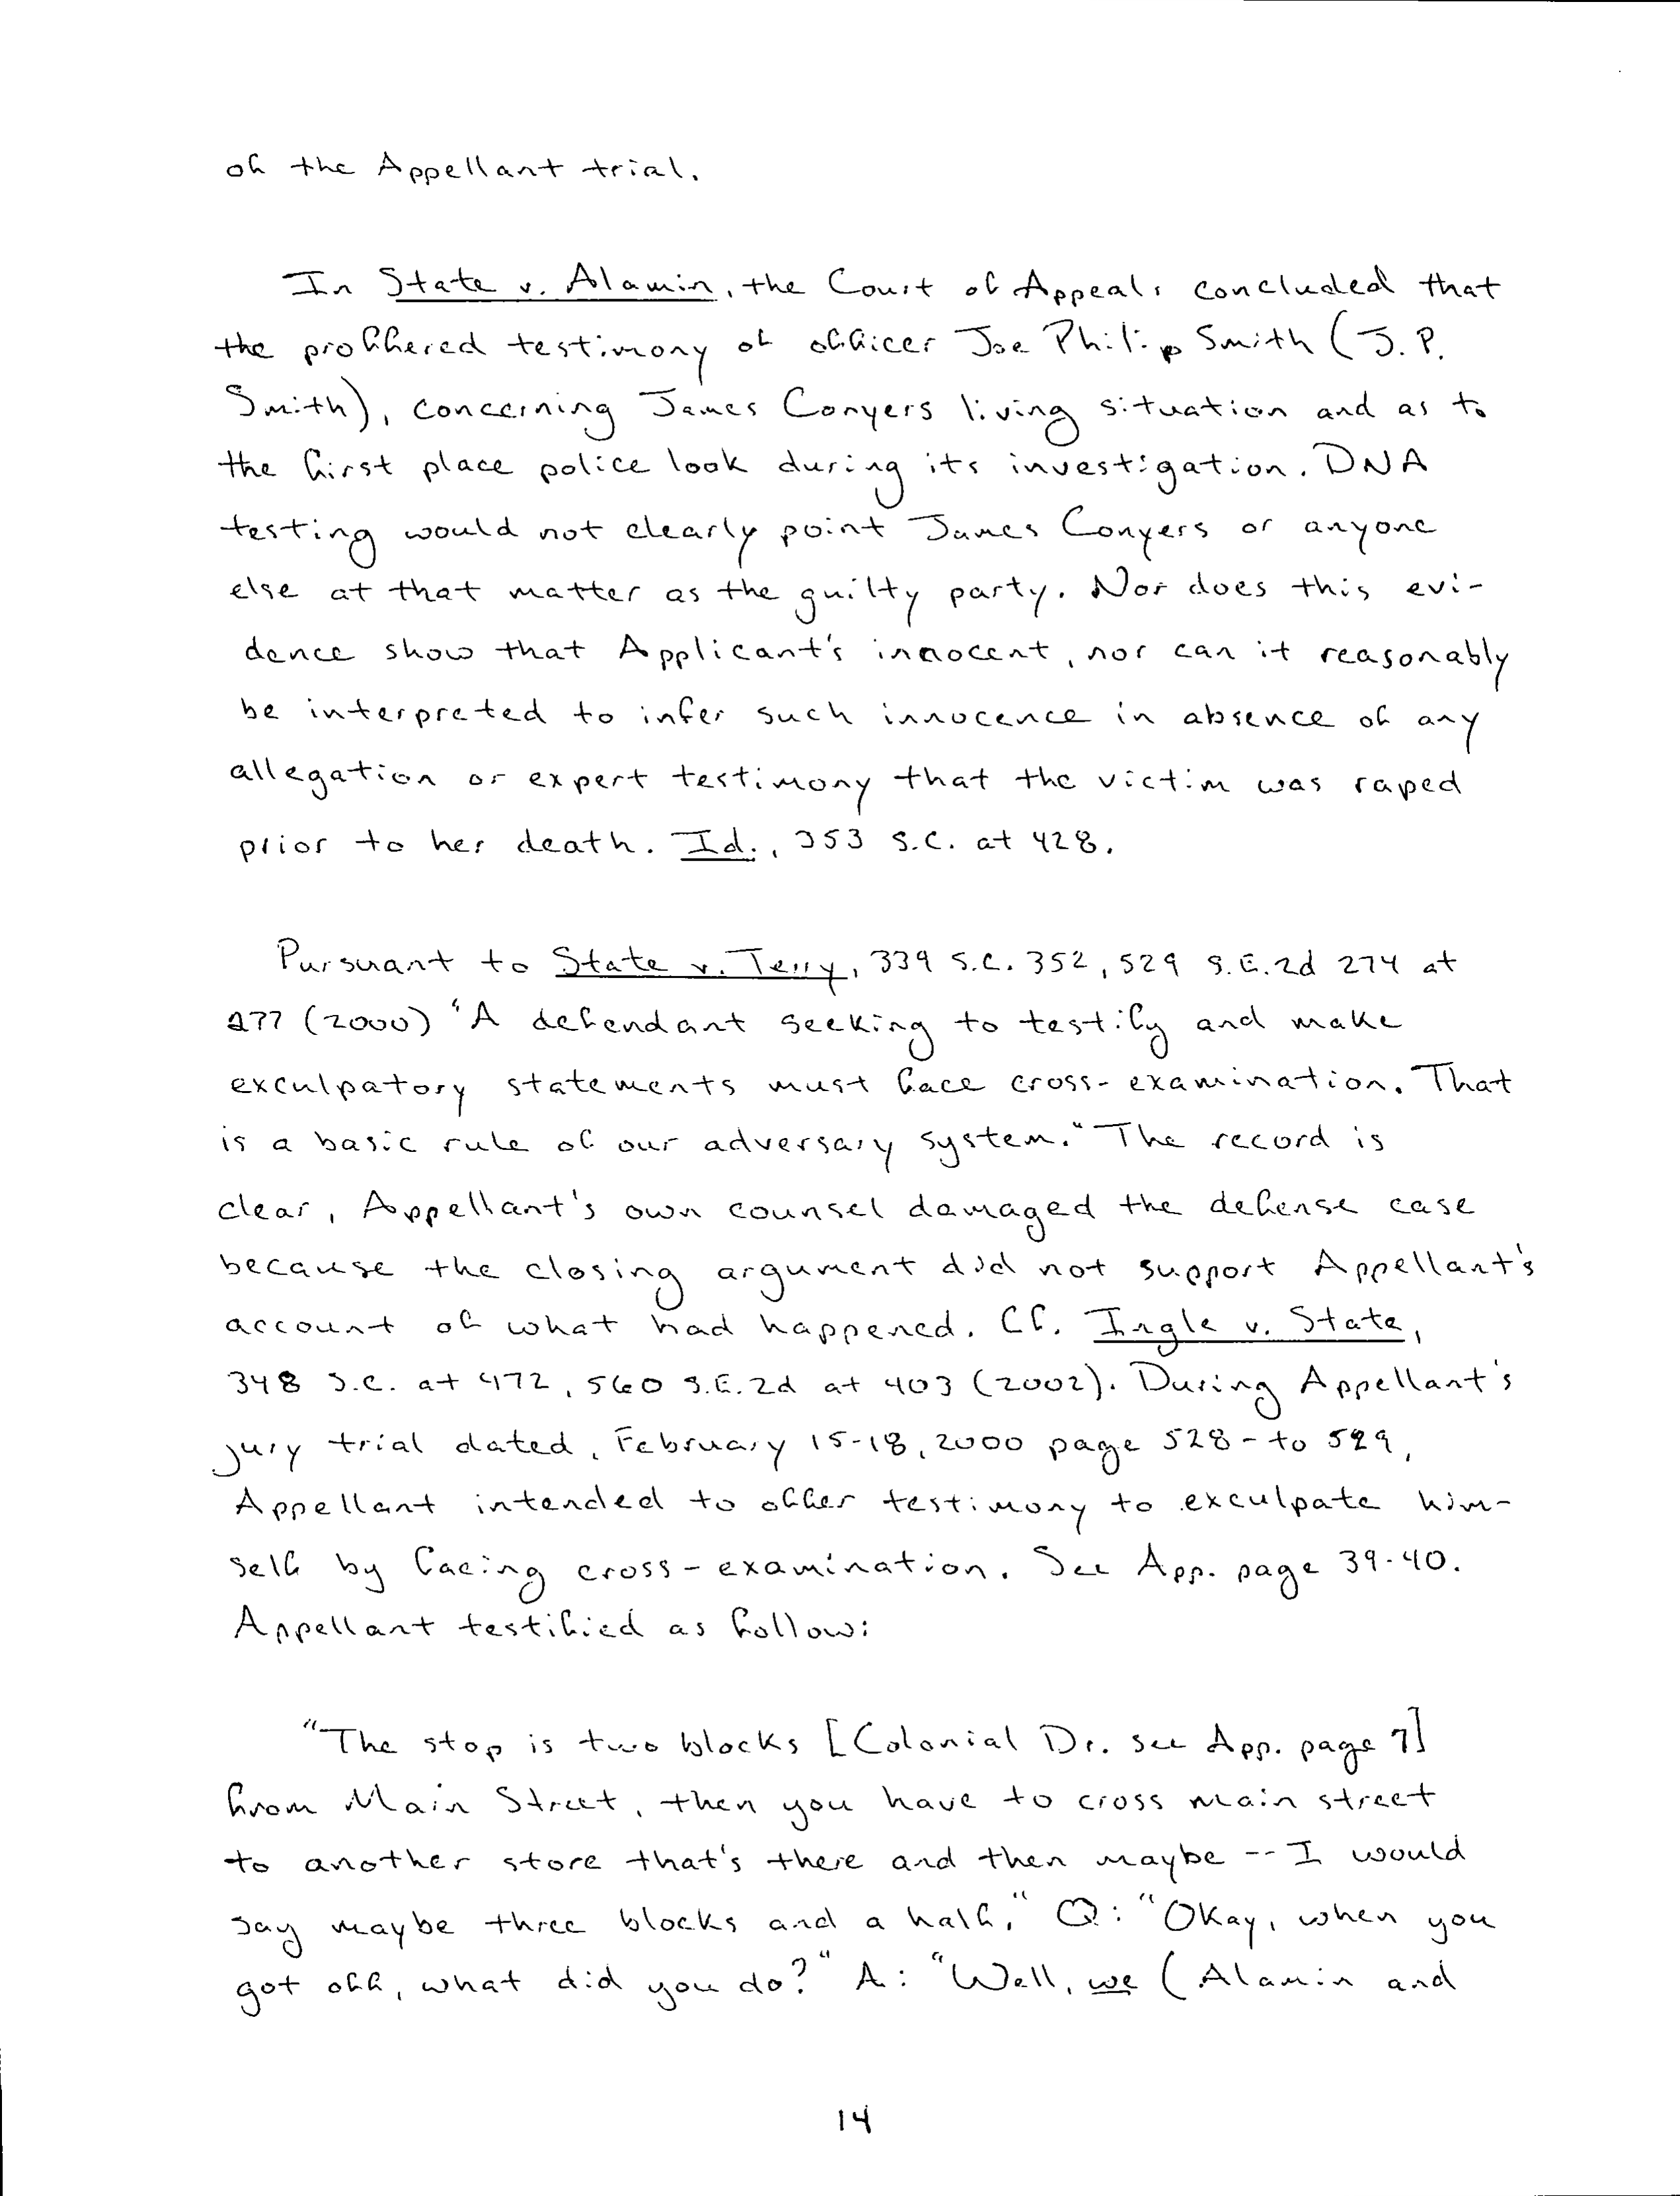 of the Appellant trial.
In State v. Alamin, the Court of Appeals concluded that
the proffered testimony of officer Joe Philip Smith (J.P.
Smith), concerning James Conyers living situation and as to
the first place police look during its investigation. DNA
testing would not clearly point James Conyers or anyone
else at that matter as the guilty party. Nor does this evi-
dence show that Applicant's innocent, nor can it reasonably
be interpreted to infer such innocence in absence of any
allegation or expert testimony that the victim was raped
prior to her death. Id., 353 S.C. at 428.
Pursuant to State v. Terry, 339 S.C. 352, 529 S.E.2d 274 at
277 (2000) "A defendant seeking to testify and make
exculpatory statements must face cross-examination. That
is a basic rule of our adversary system." The record is
clear, Appellant's own counsel damaged the defense case
because the closing argument did not support Appellant's
account of what had happened. Cf. Ingle v. State,
348 S.C. at 472, 560 S.E.2d at 403 (2002). During Appellant's
jury trial dated, February 15-18, 2000 page 528-to 529,
Appellant intended to offer testimony to exculpate him-
self by facing cross-examination. See App. page 39-40.
Appellant testified as follow:
"The stop is two blocks [Colonial Dr. see App. page 7]
from Main Street, then you have to cross main street
to another store that's there and then maybe -- I would
say maybe three blocks and a half." Q: "Okay, when you
got off, what did you do?" A: "Well, we (Alamin and
14